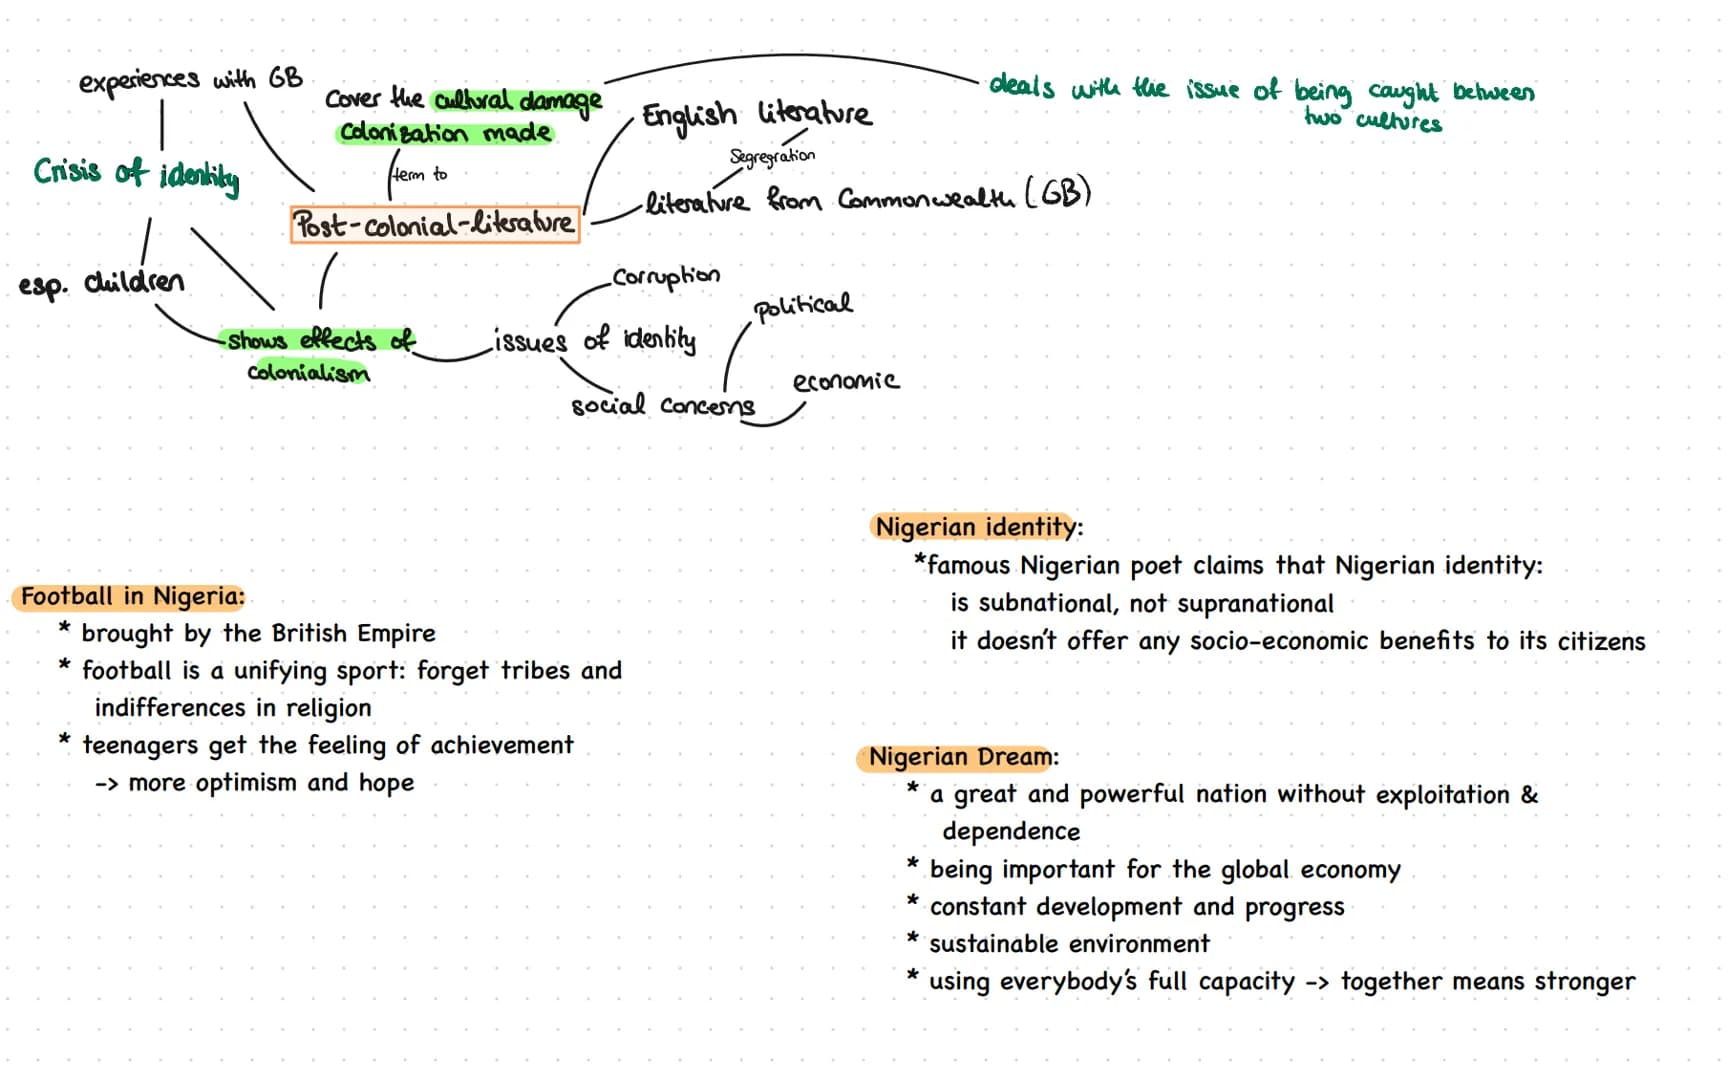 experiences with GB
Cover the cultural damage
Colonization made
deals with the issue of being caught between
two cultures
English literature
Segregration
term to
Crisis of identity
literature from Commonwealth (GB)
Post-colonial-literature
esp. children
Corruption
political
shows effects of
colonialism
issues of identity
economic
social concerns
Nigerian identity:
*famous Nigerian poet claims that Nigerian identity:
is subnational, not supranational
it doesn't offer any socio-economic benefits to its citizens
Football in Nigeria:
* brought by the British Empire
* football is a unifying sport: forget tribes and
indifferences in religion
* teenagers get the feeling of achievement
-> more optimism and hope
Nigerian Dream:
* a great and powerful nation without exploitation &
dependence
* being important for the global economy
* constant development and progress
* sustainable environment
* using everybody's full capacity -> together means stronger